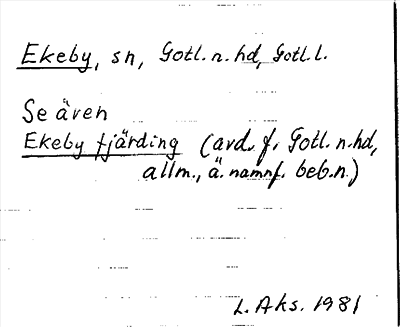 Ekeby, sn, Gotl. n. hd, Gotl. l.
Se även
Ekeby fjärding (avd. f. Gotl. n. hd,
allm., ä. namnf. beb.n.)
L. Aks. 1981